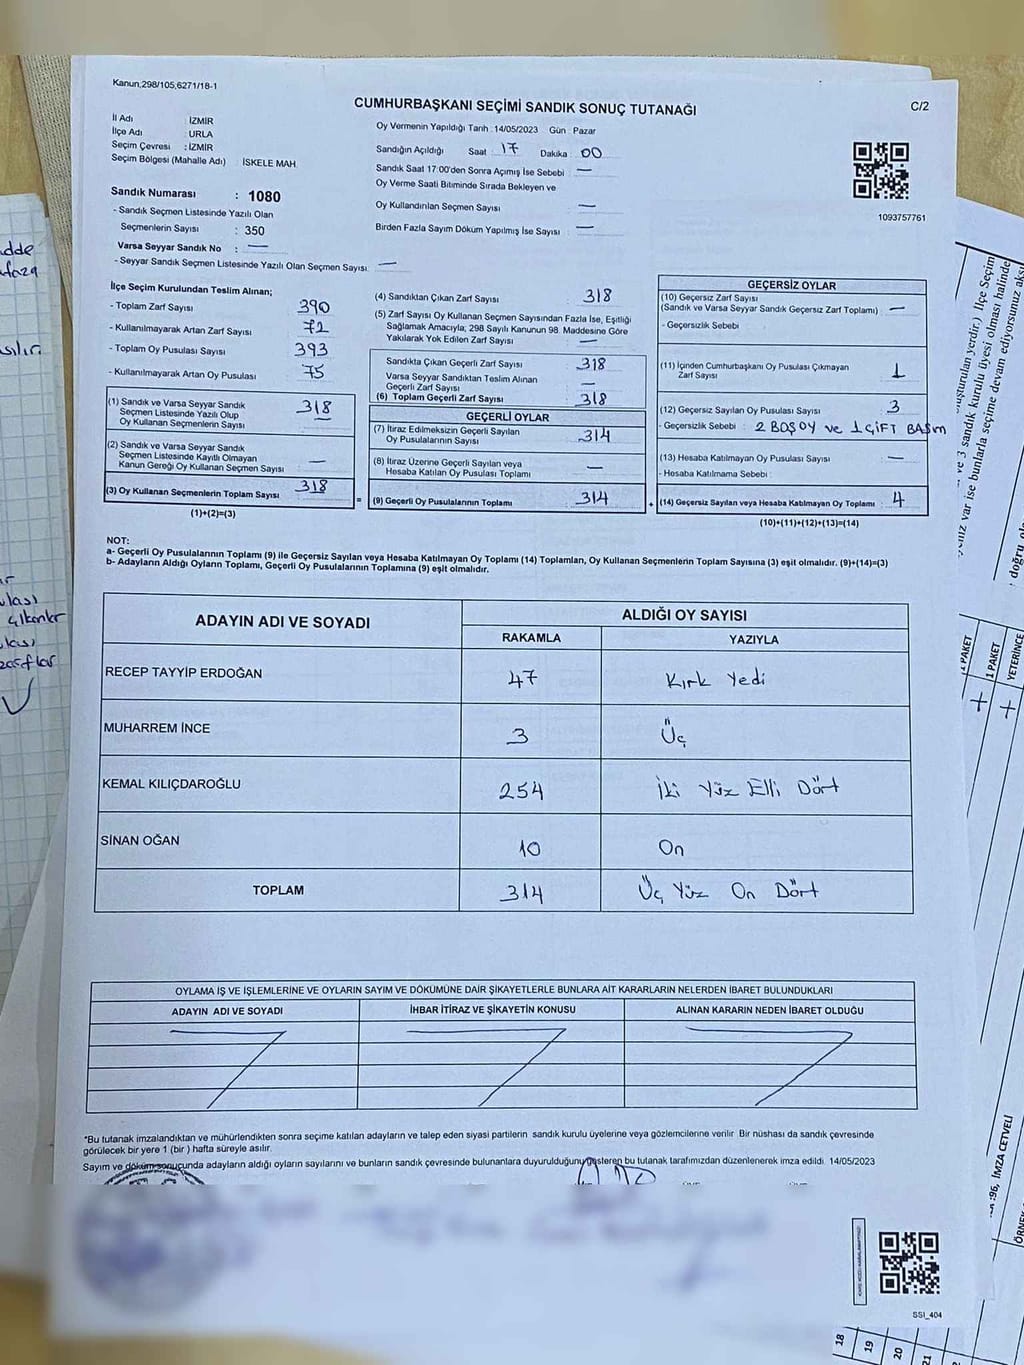 Kanun,298/105,6271/18-1
CUMHURBAŞKANI SEÇİMİ SANDIK SONUÇ TUTANAĞI
C/2
İl Adı : İZMİR
İlçe Adı : URLA
Seçim Çevresi : İZMİR
Seçim Bölgesi (Mahalle Adı) İSKELE MAH.
Sandık Numarası : 1080
- Sandık Seçmen Listesinde Yazılı Olan
Seçmenlerin Sayısı : 350
Varsa Seyyar Sandık No : —
- Seyyar Sandık Seçmen Listesinde Yazılı Olan Seçmen Sayısı: —
Oy Vermenin Yapıldığı Tarih : 14/05/2023 Gün : Pazar
Sandığın Açıldığı Saat : 17 Dakika : 00
Sandık Saat 17:00'den Sonra Açımış İse Sebebi : —
Oy Verme Saati Bitiminde Sırada Bekleyen ve
Oy Kullandırılan Seçmen Sayısı : —
Birden Fazla Sayım Döküm Yapılmış İse Sayısı : —
1093757761
İlçe Seçim Kurulundan Teslim Alınan;
- Toplam Zarf Sayısı 390
- Kullanılmayarak Artan Zarf Sayısı 72
- Toplam Oy Pusulası Sayısı 393
- Kullanılmayarak Artan Oy Pusulası 75
(1) Sandık ve Varsa Seyyar Sandık
Seçmen Listesinde Yazılı Olup
Oy Kullanan Seçmenlerin Sayısı 318
(2) Sandık ve Varsa Seyyar Sandık
Seçmen Listesinde Kayıtlı Olmayan
Kanun Gereği Oy Kullanan Seçmen Sayısı —
(3) Oy Kullanan Seçmenlerin Toplam Sayısı 318
(1)+(2)=(3)
(4) Sandıktan Çıkan Zarf Sayısı 318
(5) Zarf Sayısı Oy Kullanan Seçmen Sayısından Fazla İse, Eşitliği
Sağlamak Amacıyla; 298 Sayılı Kanunun 98. Maddesine Göre
Yakılarak Yok Edilen Zarf Sayısı —
Sandıkta Çıkan Geçerli Zarf Sayısı 318
Varsa Seyyar Sandıktan Teslim Alınan
Geçerli Zarf Sayısı —
(6) Toplam Geçerli Zarf Sayısı 318
GEÇERLİ OYLAR
(7) İtiraz Edilmeksizin Geçerli Sayılan
Oy Pusulalarının Sayısı 314
(8) İtiraz Üzerine Geçerli Sayılan veya
Hesaba Katılan Oy Pusulası Toplamı —
= (9) Geçerli Oy Pusulalarının Toplamı 314
GEÇERSİZ OYLAR
(10) Geçersiz Zarf Sayısı
(Sandık ve Varsa Seyyar Sandık Geçersiz Zarf Toplamı) —
- Geçersizlik Sebebi :
(11) İçinden Cumhurbaşkanı Oy Pusulası Çıkmayan
Zarf Sayısı 1
(12) Geçersiz Sayılan Oy Pusulası Sayısı 3
- Geçersizlik Sebebi : 2 BOŞ OY ve 1 ÇİFT BASIM
(13) Hesaba Katılmayan Oy Pusulası Sayısı —
- Hesaba Katılmama Sebebi :
+ (14) Geçersiz Sayılan veya Hesaba Katılmayan Oy Toplamı 4
(10)+(11)+(12)+(13)=(14)
NOT:
a- Geçerli Oy Pusulalarının Toplamı (9) ile Geçersiz Sayılan veya Hesaba Katılmayan Oy Toplamı (14) Toplamları, Oy Kullanan Seçmenlerin Toplam Sayısına (3) eşit olmalıdır. (9)+(14)=(3)
b- Adayların Aldığı Oyların Toplamı, Geçerli Oy Pusulalarının Toplamına (9) eşit olmalıdır.
ADAYIN ADI VE SOYADI
ALDIĞI OY SAYISI
RAKAMLA YAZIYLA
RECEP TAYYİP ERDOĞAN 47 Kırk Yedi
MUHARREM İNCE 3 Üç
KEMAL KILIÇDAROĞLU 254 İki Yüz Elli Dört
SİNAN OĞAN 10 On
TOPLAM 314 Üç Yüz On Dört
OYLAMA İŞ VE İŞLEMLERİNE VE OYLARIN SAYIM VE DÖKÜMÜNE DAİR ŞİKAYETLERLE BUNLARA AİT KARARLARIN NELERDEN İBARET BULUNDUKLARI
ADAYIN ADI VE SOYADI
İHBAR İTİRAZ VE ŞİKAYETİN KONUSU
ALINAN KARARIN NEDEN İBARET OLDUĞU
*Bu tutanak imzalandıktan ve mühürlendikten sonra seçime katılan adayların ve talep eden siyasi partilerin sandık kurulu üyelerine veya gözlemcilerine verilir. Bir nüshası da sandık çevresinde
görülecek bir yere 1 (bir) hafta süreyle asılır.
Sayım ve döküm sonucunda adayların aldığı oyların sayılarını ve bunların sandık çevresinde bulunanlara duyurulduğunu gösteren bu tutanak tarafımızdan düzenlenerek imza edildi. 14/05/2023
SSI_404
1 PAKET
1 PAKET
YETERİNCE
+
+
İMZA CETVELİ
18
19
20
21